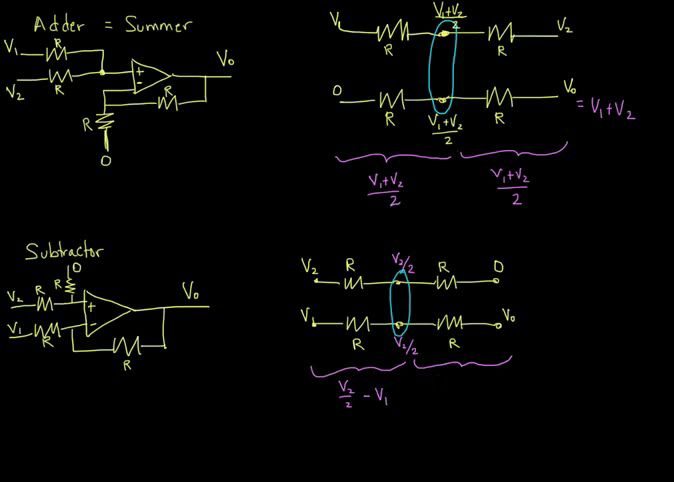 Adder = Summer
V₁
R
V₂
R
+
-
V₀
R
R
0
V₁
R
V₁+V₂/2
R
V₂
0
R
V₁+V₂/2
R
V₀
= V₁+V₂
V₁+V₂/2
V₁+V₂/2
Subtractor
0
R
V₂
R
+
V₁
R
-
V₀
R
V₂
R
V₂/2
R
0
V₁
R
V₂/2
R
V₀
V₂/2 - V₁